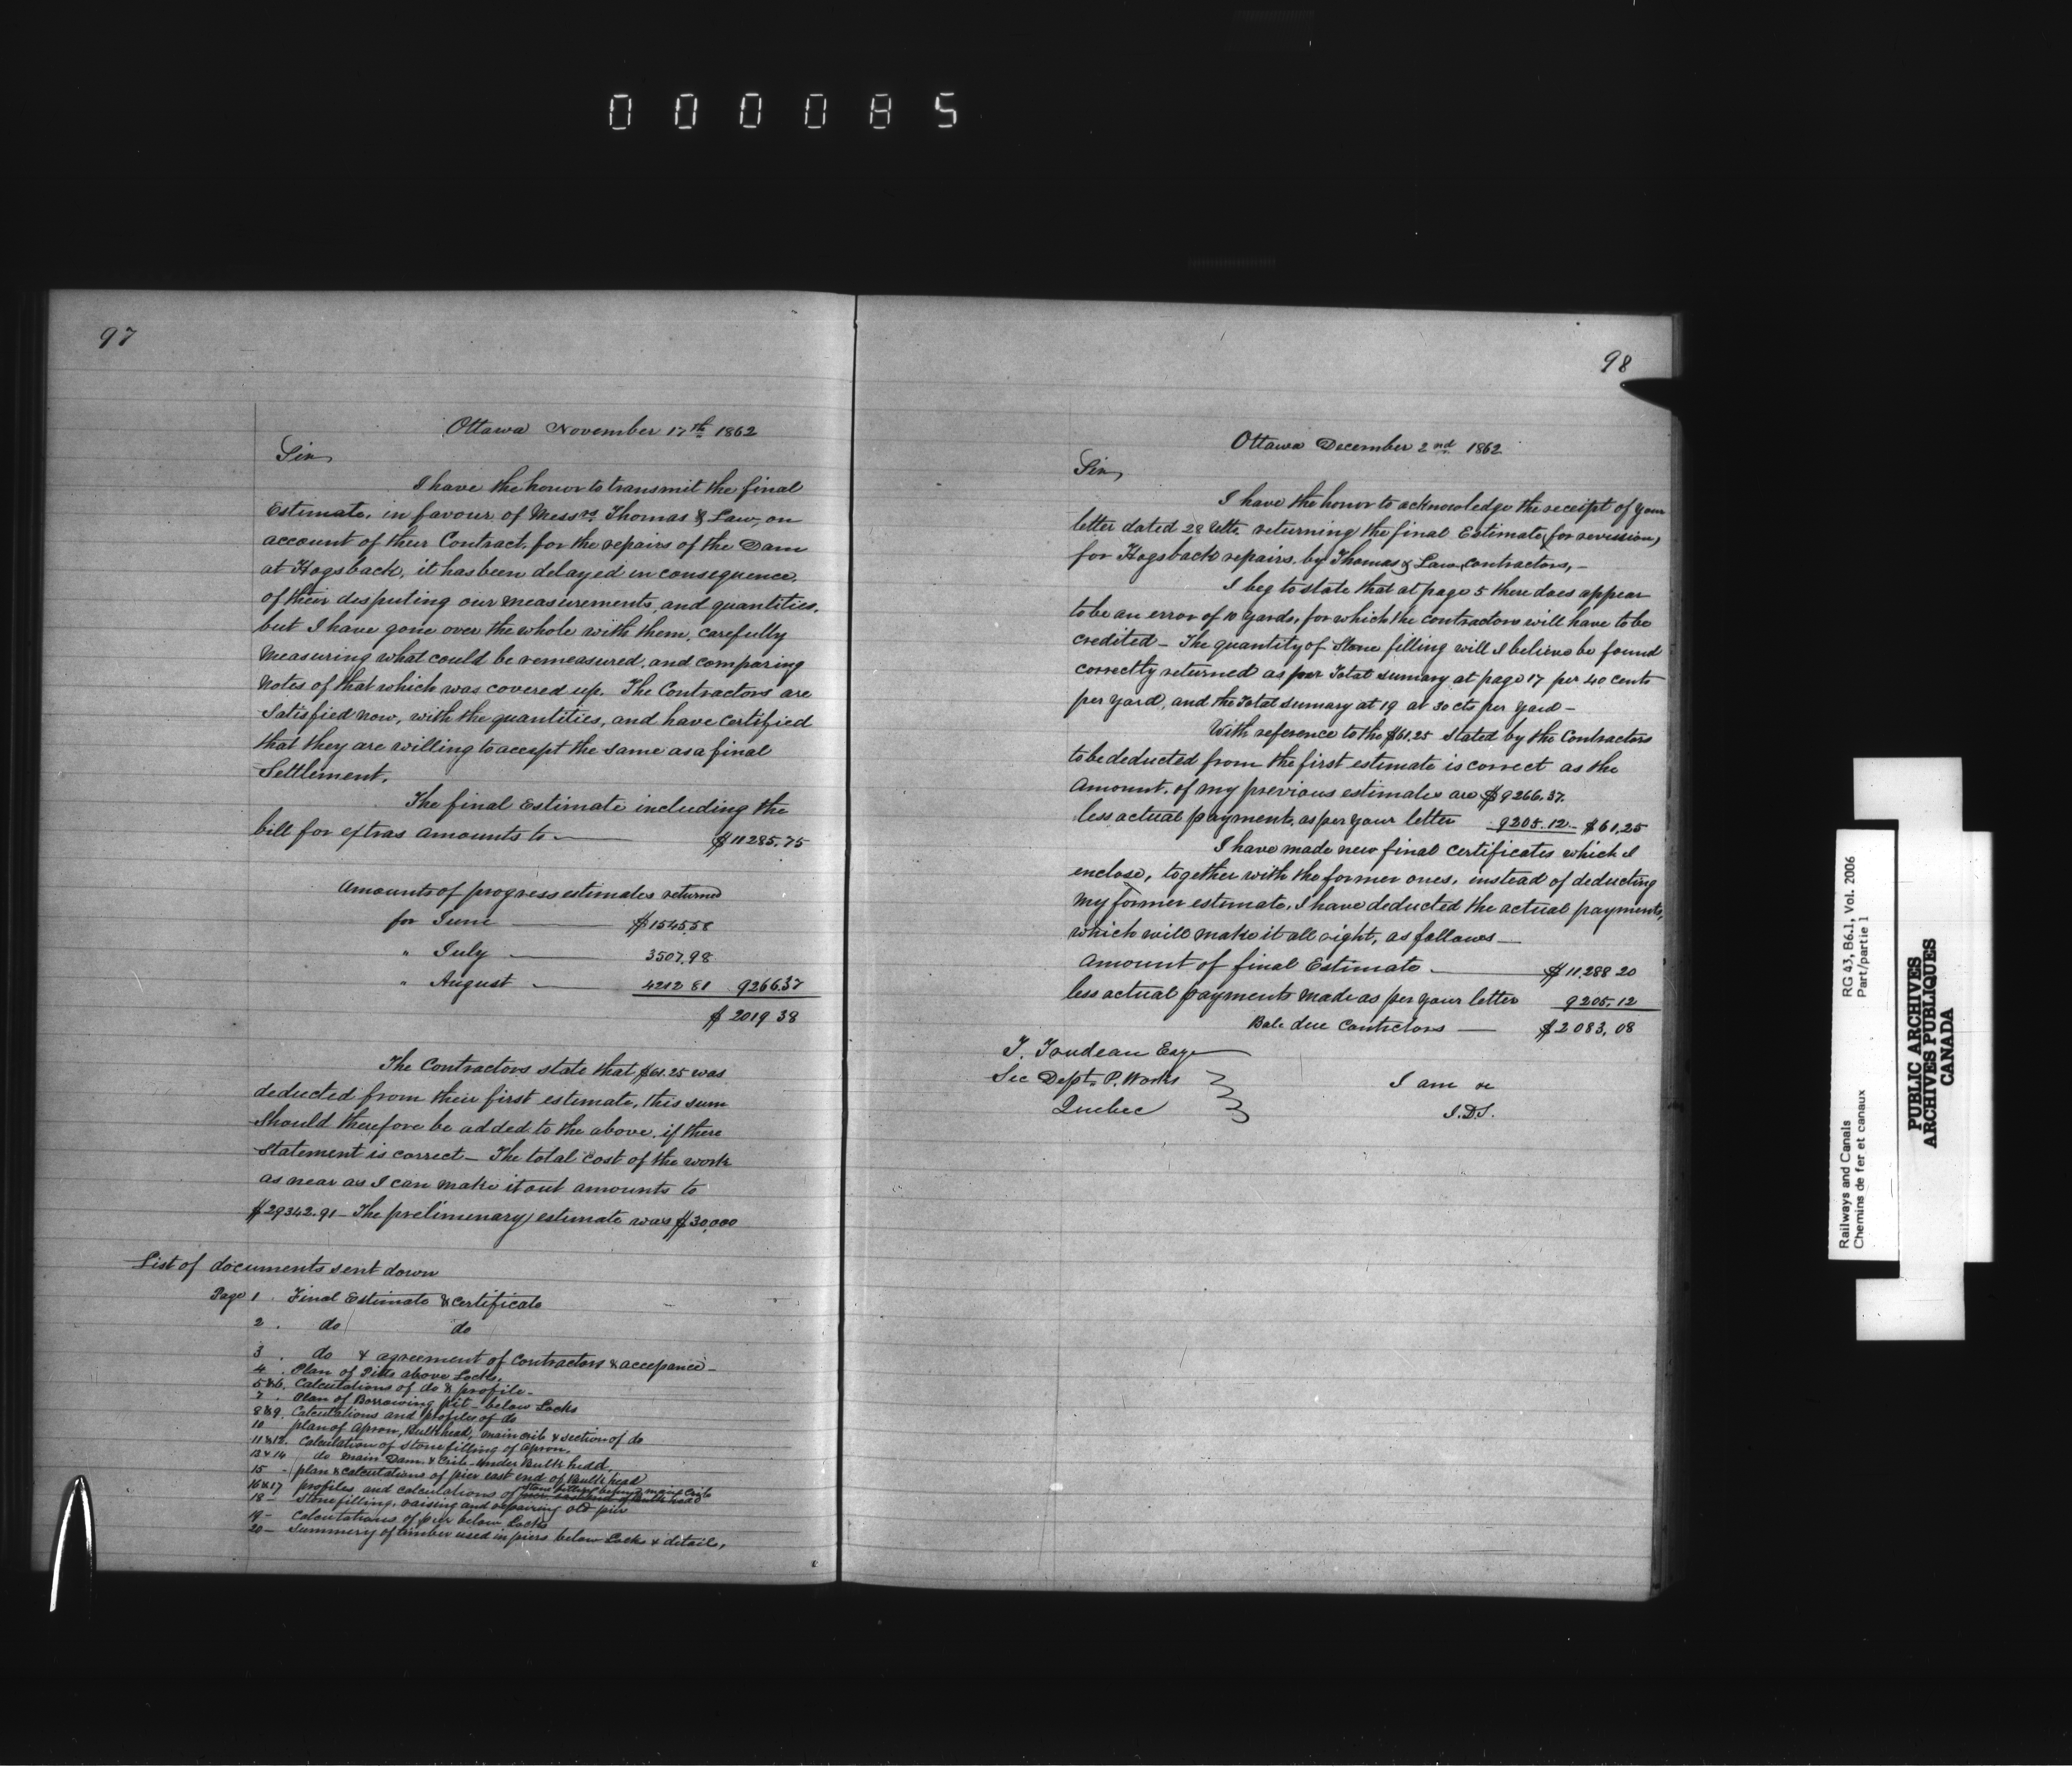 000085
97
Ottawa November 17th 1862
Sir,
I have the honor to transmit the final
Estimate, in favour of Messrs Thomas & Law, on
account of their Contract, for the repairs of the Dam
at Hogsback, it has been delayed in consequence,
of their disputing our measurements, and quantities,
but I have gone over the whole with them, carefully
measuring what could be remeasured, and comparing
notes of that which was covered up. The Contractors are
Satisfied now, with the quantities, and have certified
that they are willing to accept the same as a final
Settlement.
The final Estimate including the
bill for extras amounts to — $11285.75
Amounts of progress estimates returned
for June — $1545.58
" July — 3507.98
" August — 4212 81 9266.37
$ 2019 38
The Contractors state that $61.25 was
deducted from their first estimate, this sum
should therefore be added to the above, if there
statement is correct — The total cost of the work
as near as I can make it out amounts to
$29342.91 — The prelimenary estimate was $30,000
List of documents sent down
Page 1 . Final Estimate & Certificate
2 . do do
3 . do & agreement of Contractors & accepance —
4 . Plan of Pitts above Locks,
5 & 6. Calculations of do & profile —
7 . Plan of Borrowing pit — below Locks
8 & 9. Calculations and profiles of do
10 plan of Apron, Bulkhead, main crib & section of do
11 & 12. Calculation of stone filling of Apron,
13 & 14 do Main Dam, & Crib under Bulk head,
15 — plan & calculations of pier east end of Bulk head
16 & 17 profiles and calculations of stone filling behind main Crib
18 — Stone filling, raising and repairing old pier
19 — Calculations of pier below Locks
20 — Summery of timber used in piers below Locks & details,
98
Ottawa December 2nd 1862
Sir,
I have the honor to acknowledge the receipt of your
letter dated 28 Ulto. returning the final Estimate, for revision,
for Hogsback repairs, by Thomas & Law, Contractors, —
I beg to state that at page 5 there does appear
to be an error of 10 yards, for which the contractors will have to be
credited — The quantity of Stone filling will I believe be found
correctly returned as per Total sumary at page 17 per 40 cents
per yard, and the Total sumary at 19 at 30 cts per yard —
With reference to the $61.25 stated by the Contractors
to be deducted from the first estimate is correct as the
Amount, of my previous estimates are $9266.37.
less actual payments, as per your letter 9205.12 — $61.25
I have made new final certificates which I
enclose, together with the former ones, instead of deducting
my former estimate, I have deducted the actual payments,
which will make it all right, as follows —
Amount of final Estimate — $11.288 20
less actual payments made as per your letter 9205.12
Bale due Contrctors — $2083,08
T. Trudeau Esqr
Sec Dept. P. Works
Quebec
I am &c
J.D.S.
Railways and Canals
Chemins de fer et canaux
RG 43, B6.1, Vol. 2006
Part/partie 1
PUBLIC ARCHIVES
ARCHIVES PUBLIQUES
CANADA